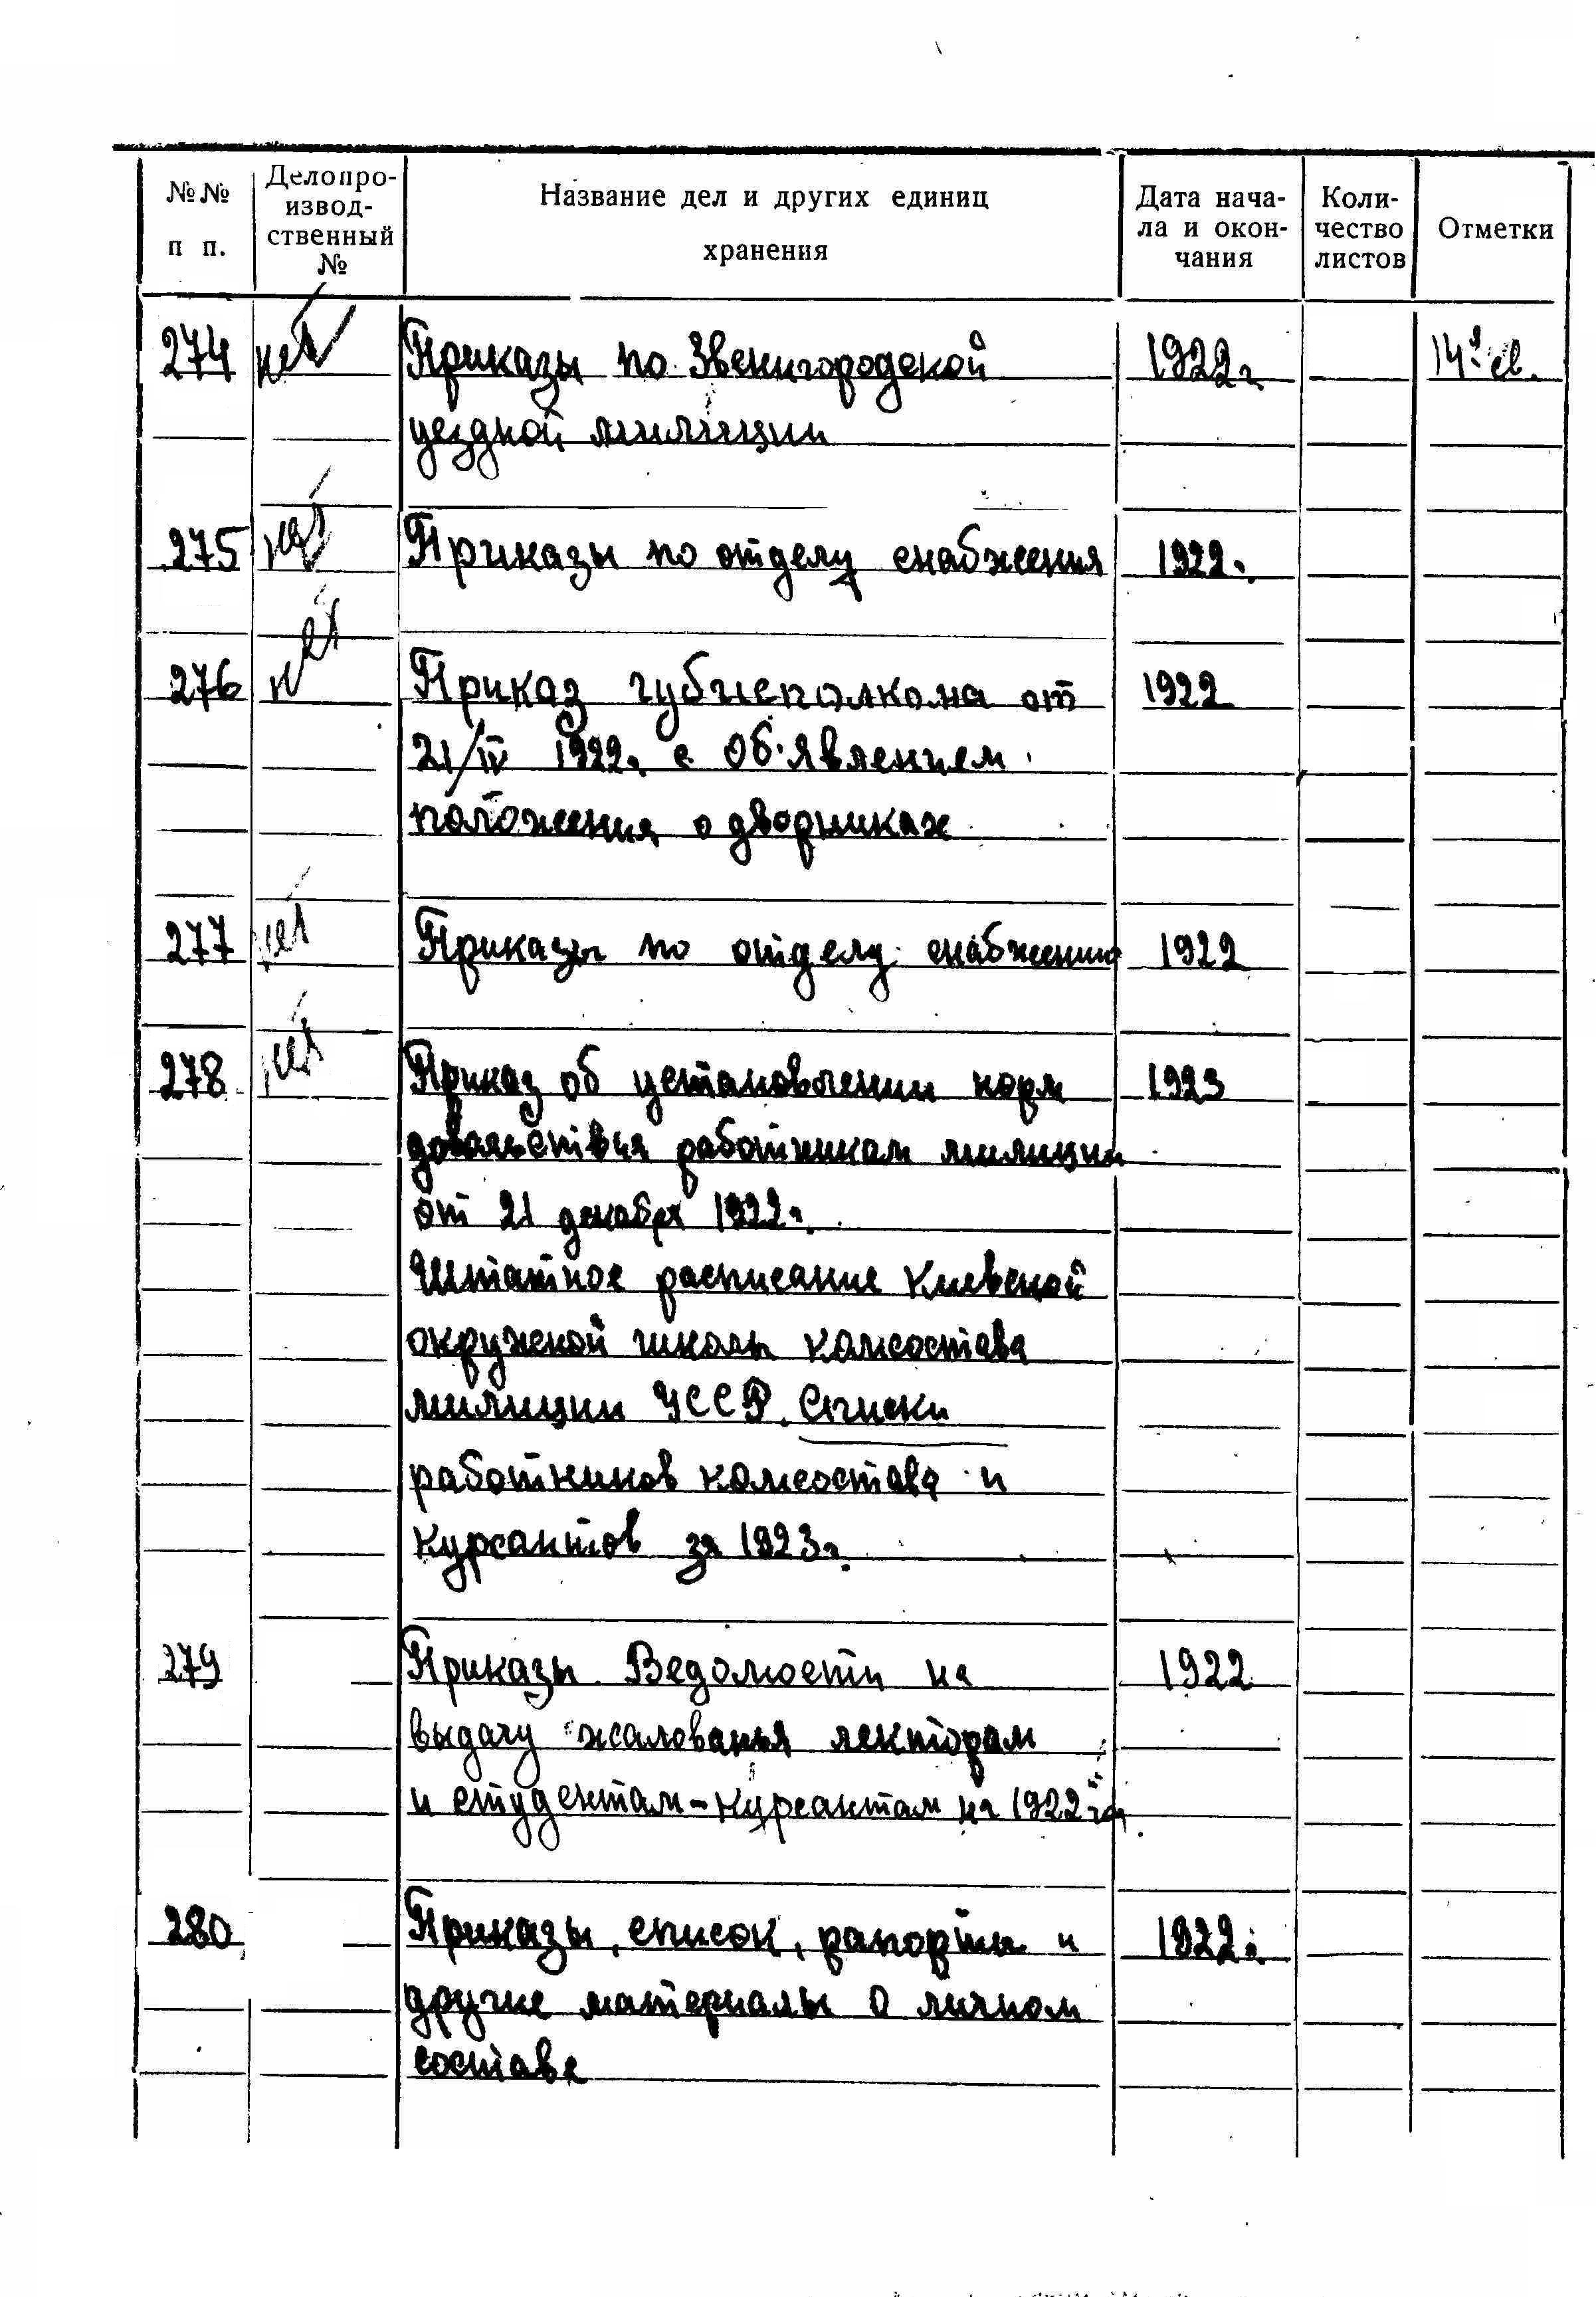 №№ п п.
Делопро-
извод-
ственный
№
Название дел и других единиц
хранения
Дата нача-
ла и окон-
чания
Коли-
чество
листов
Отметки
274 нет Приказы по Звенигородской 1922 г.
уездной милиции
275 нет Приказы по отделу снабжения 1922.
276 нет Приказ губисполкома от 1922
21/IV 1922г. с Об'явлением
положения о дворниках
277 нет Приказы по отделу снабжения 1922
278 нет Приказ об установлении норм 1923
довольствия работникам милиции
от 21 декабря 1922г.
Штатное расписание Киевской
окружной школы комсостава
милиции УССР. Списки
работников комсостава и
курсантов за 1923г.
279 — Приказы. Ведомости на 1922
выдачу жалованья лекторам
и студентам-курсантам на 1922 год.
280 — Приказы, список, рапорты и 1922г.
другие материалы о личном
составе